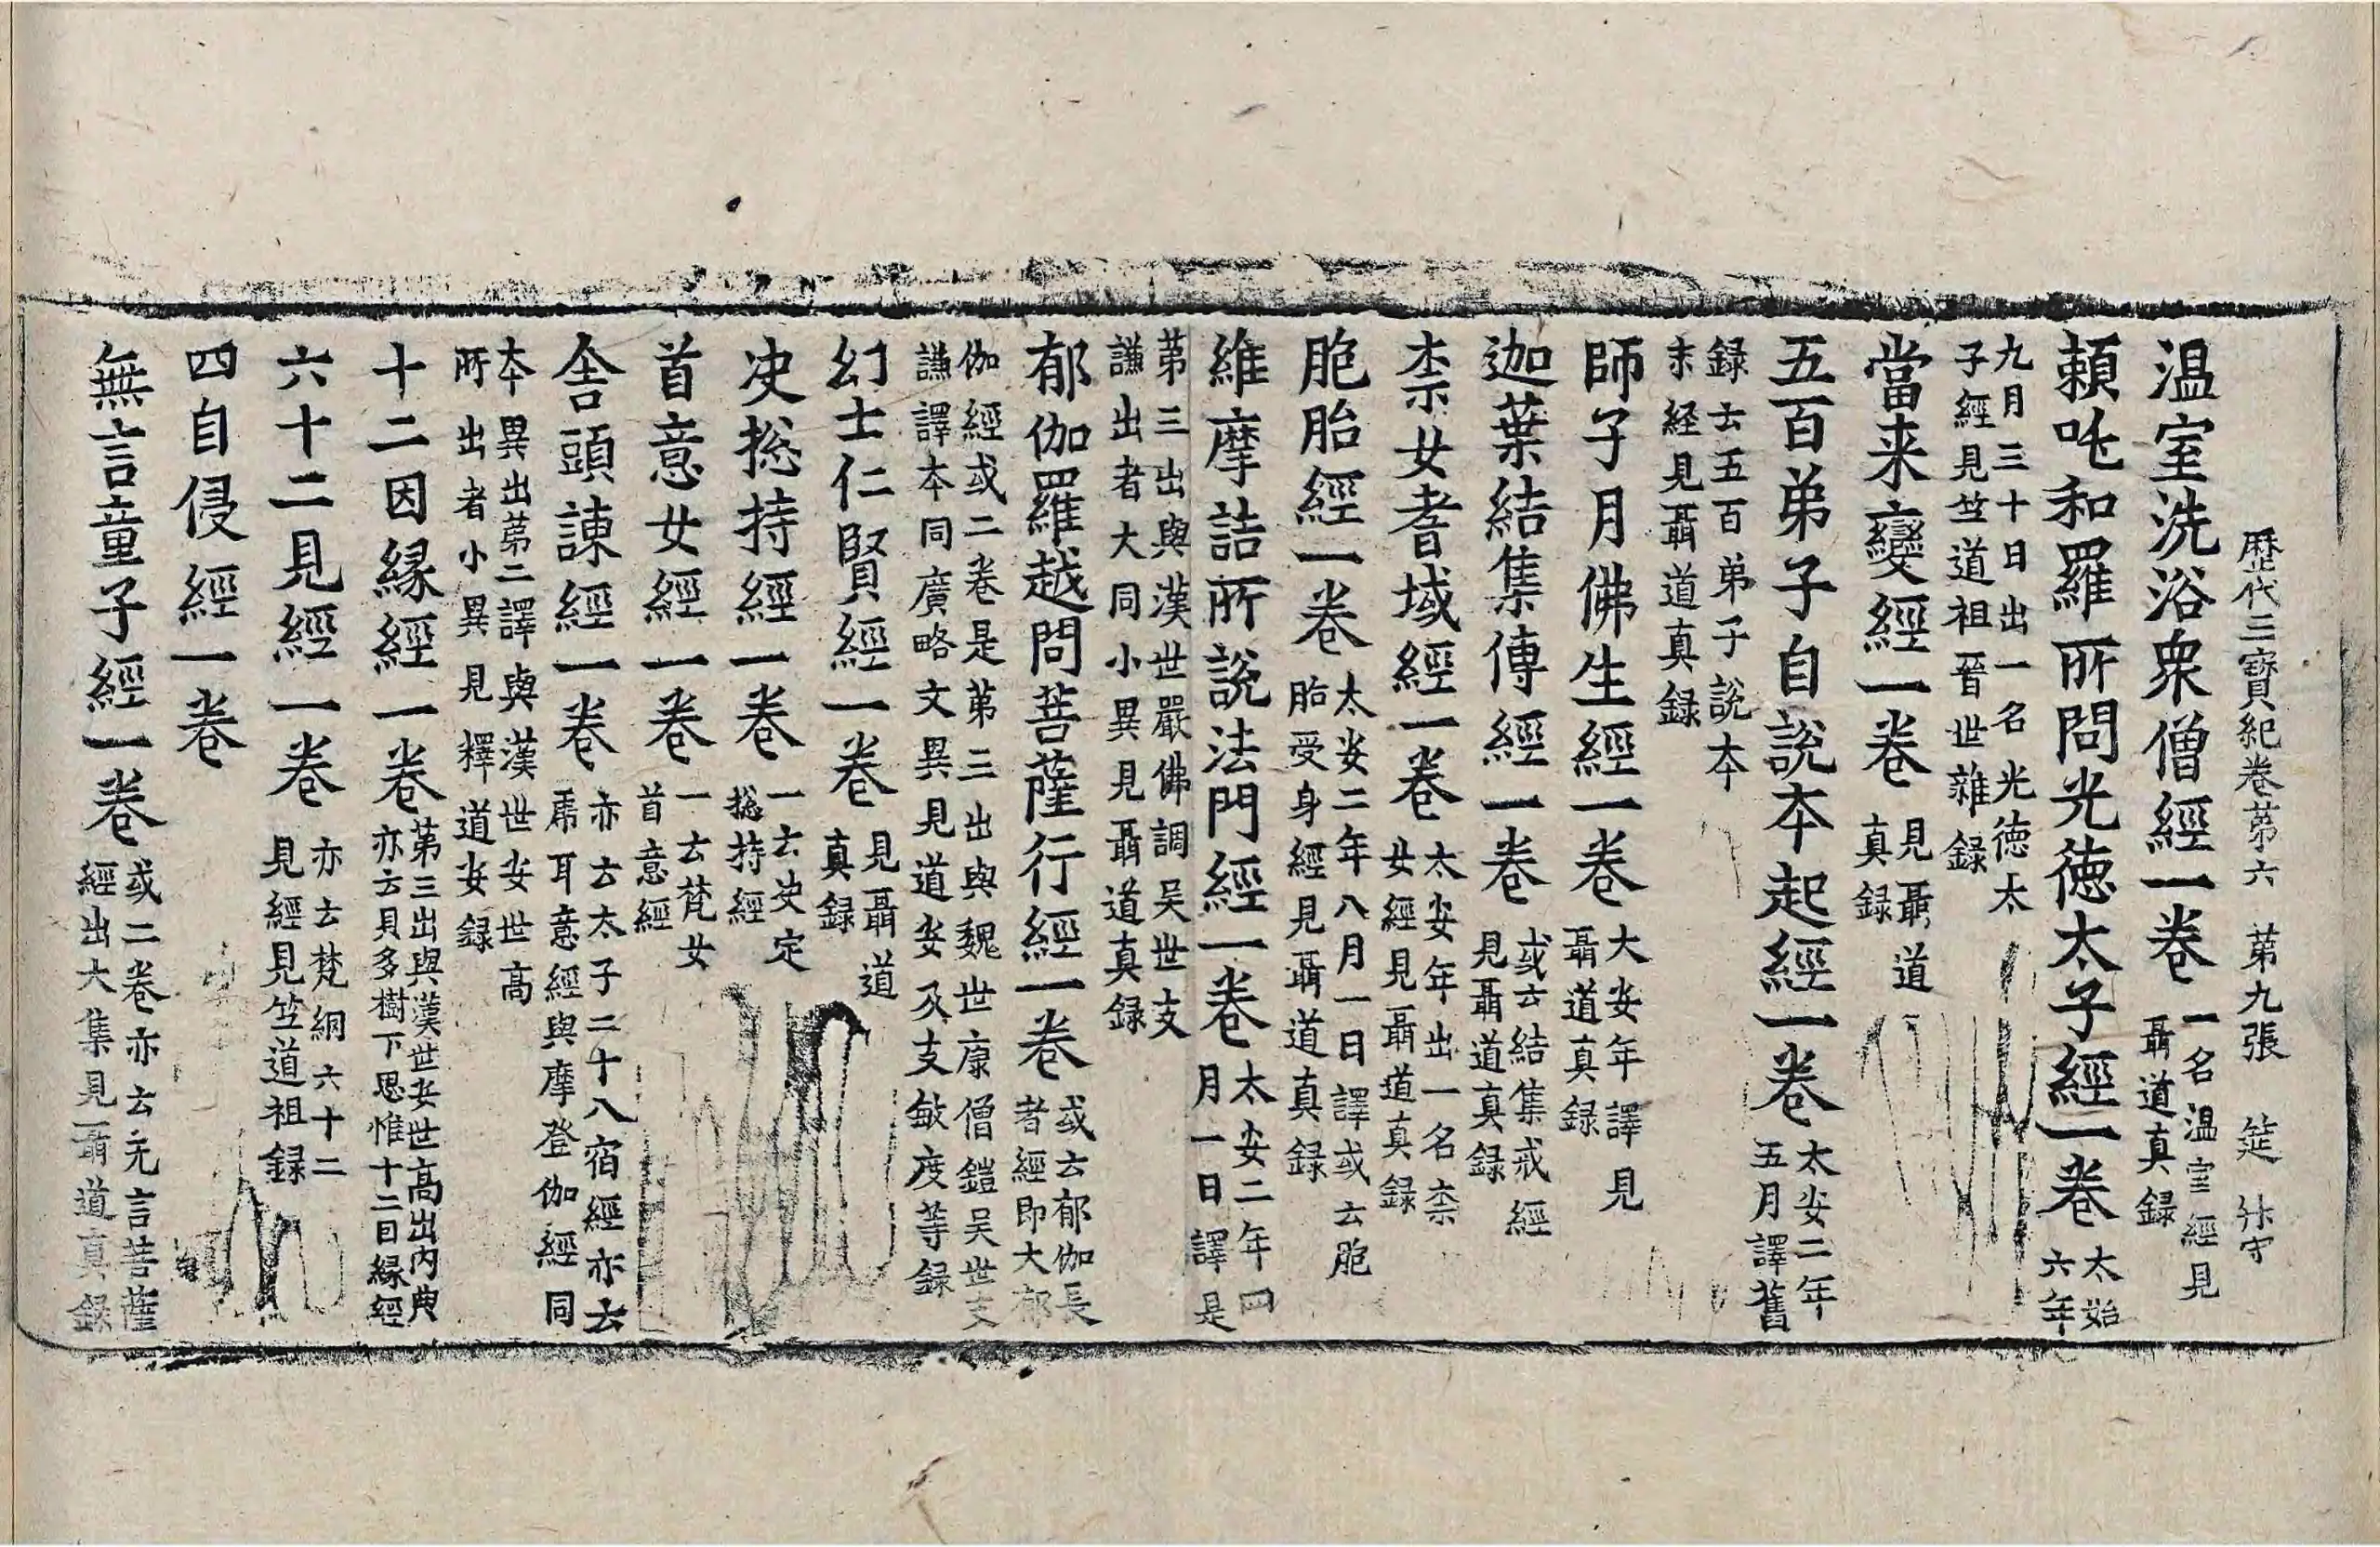 歷代三寶紀卷苐六　苐九張　筵
温室洗浴衆僧經一卷 一名温室經見聶道真録
頼吒和羅所問光德太子經一卷 太始六年
九月三十日出一名光德太子經見竺道祖晉世雜録
當来變經一卷 見聶道真録
五百弟子自說本起經一卷 太安二年五月譯舊
録云五百弟子說本末経見聶道真録
師子月佛生經一卷 大安年譯見聶道真録
迦葉結集傳經一卷 或云結集戒經見聶道真録
柰女耆域經一卷 太安年出一名柰女經見聶道真録
胞胎經一卷 太安二年八月一日譯或云胞胎受身經見聶道真録
維摩詰所說法門經一卷 太安二年四月一日譯是
苐三出與漢世嚴佛調吴世支謙出者大同小異見聶道真録
郁伽羅越問菩薩行經一卷 或云郁伽長者經即大郁
伽經或二卷是苐三出與魏世康僧鎧吴世支謙譯本同廣略文異見道安及支敏度等録
幻士仁賢經一卷 見聶道真録
决揔持經一卷 一云决定揔持經
首意女經一卷 一云梵女首意經
舍頭諫經一卷 亦云太子二十八宿經亦云虎耳意經與摩登伽經同
本異出苐二譯與漢世安世高所出者小異見釋道安録
十二因緣經一卷 苐三出與漢世安世高出内典亦云貝多樹下思惟十二因緣經
六十二見經一卷 亦云梵網六十二見經見竺道祖録
四自侵經一卷
無言童子經一卷 或二卷亦云无言菩薩經出大集見聶道真録